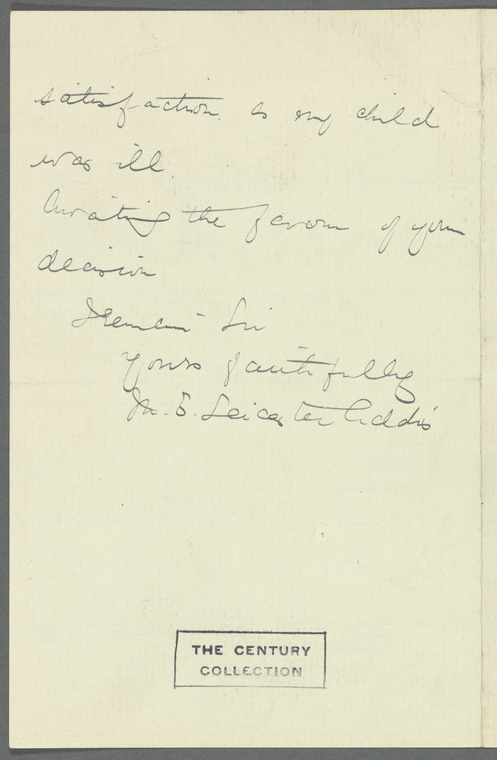 satisfaction as my child
was ill.
Awaiting the favour of your
decision
I remain Sir
Yours faithfully
M. E. Leicester Addis
THE CENTURY
COLLECTION